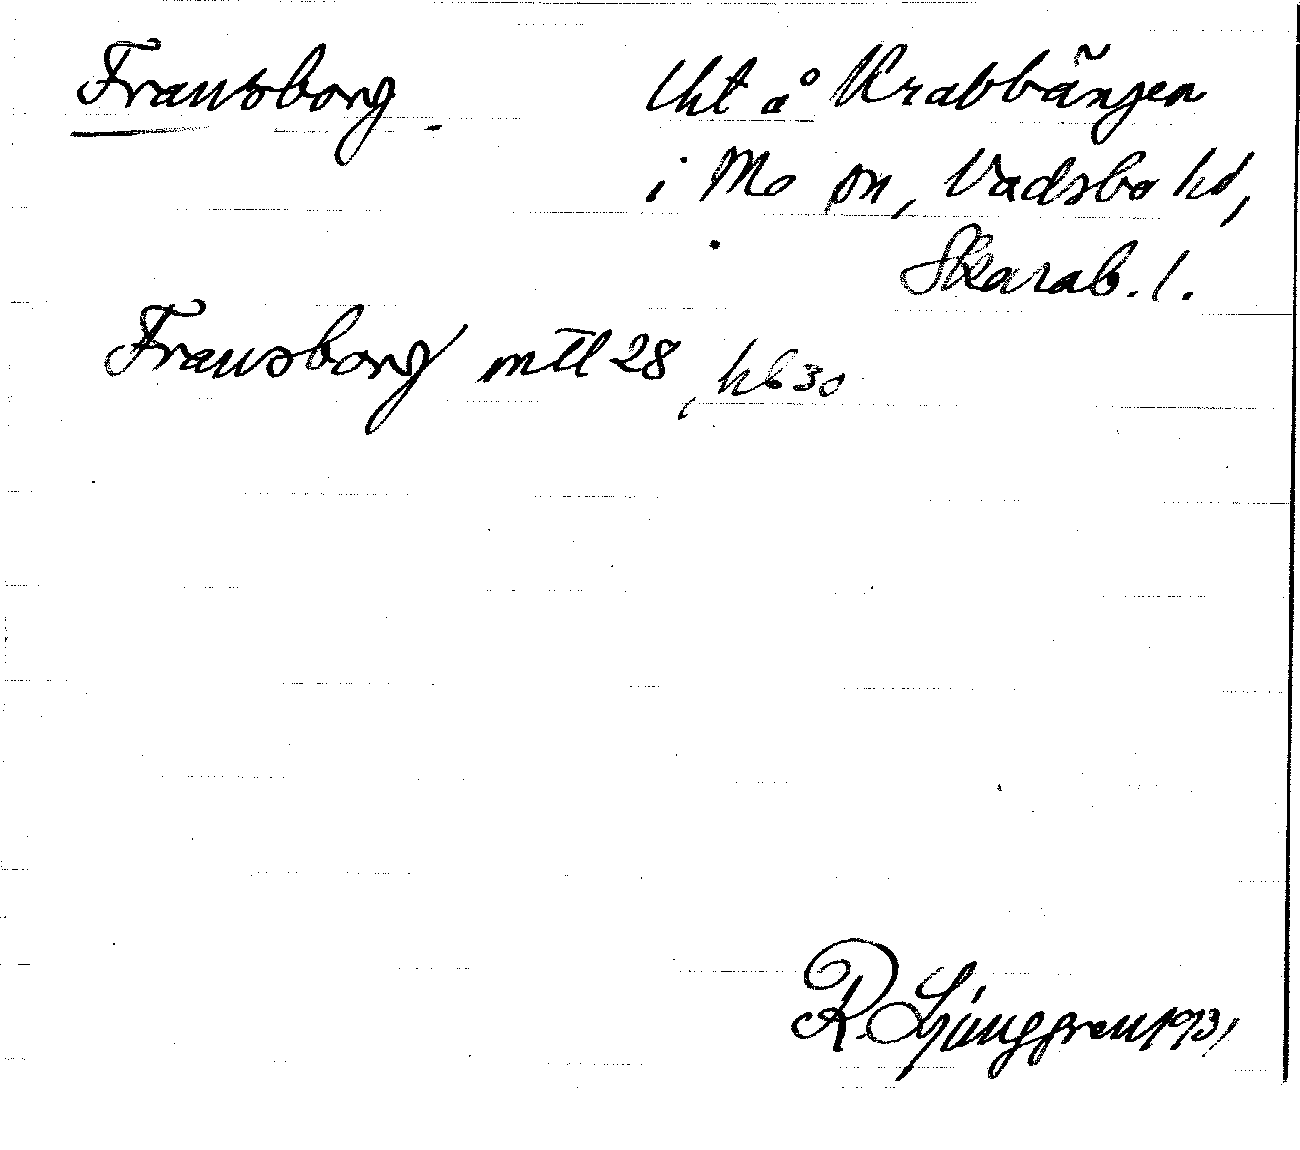 Fransborg. lht å Krabbängen
i Mo sn, Vadsbo hd,
Skarab. l.
Fransborg mtl 28, hb 30
R. Ljunggren 1931